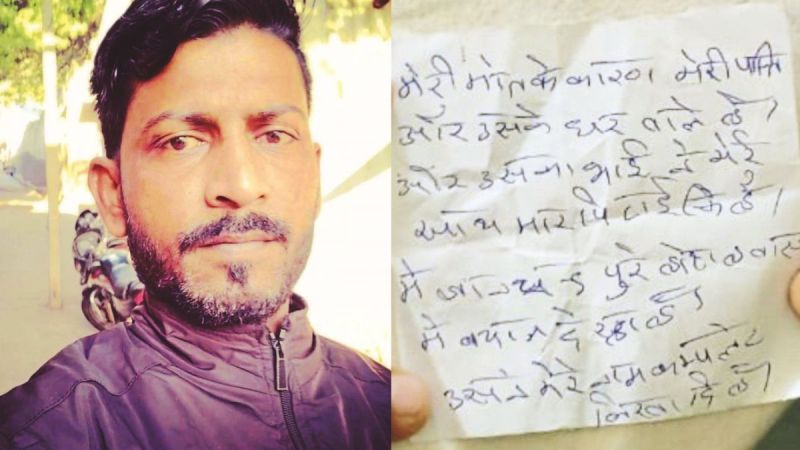 मेरी मोत के कारण मेरी पत्नि
और उसके घर वाले है।
और उसका भाई ने मेरे
साथ मार पिटाई कि है।
मे पुरे होस हवास
मे बयान दे रहा हूँ।
उसने मेरे नाम
लिखा दि है।